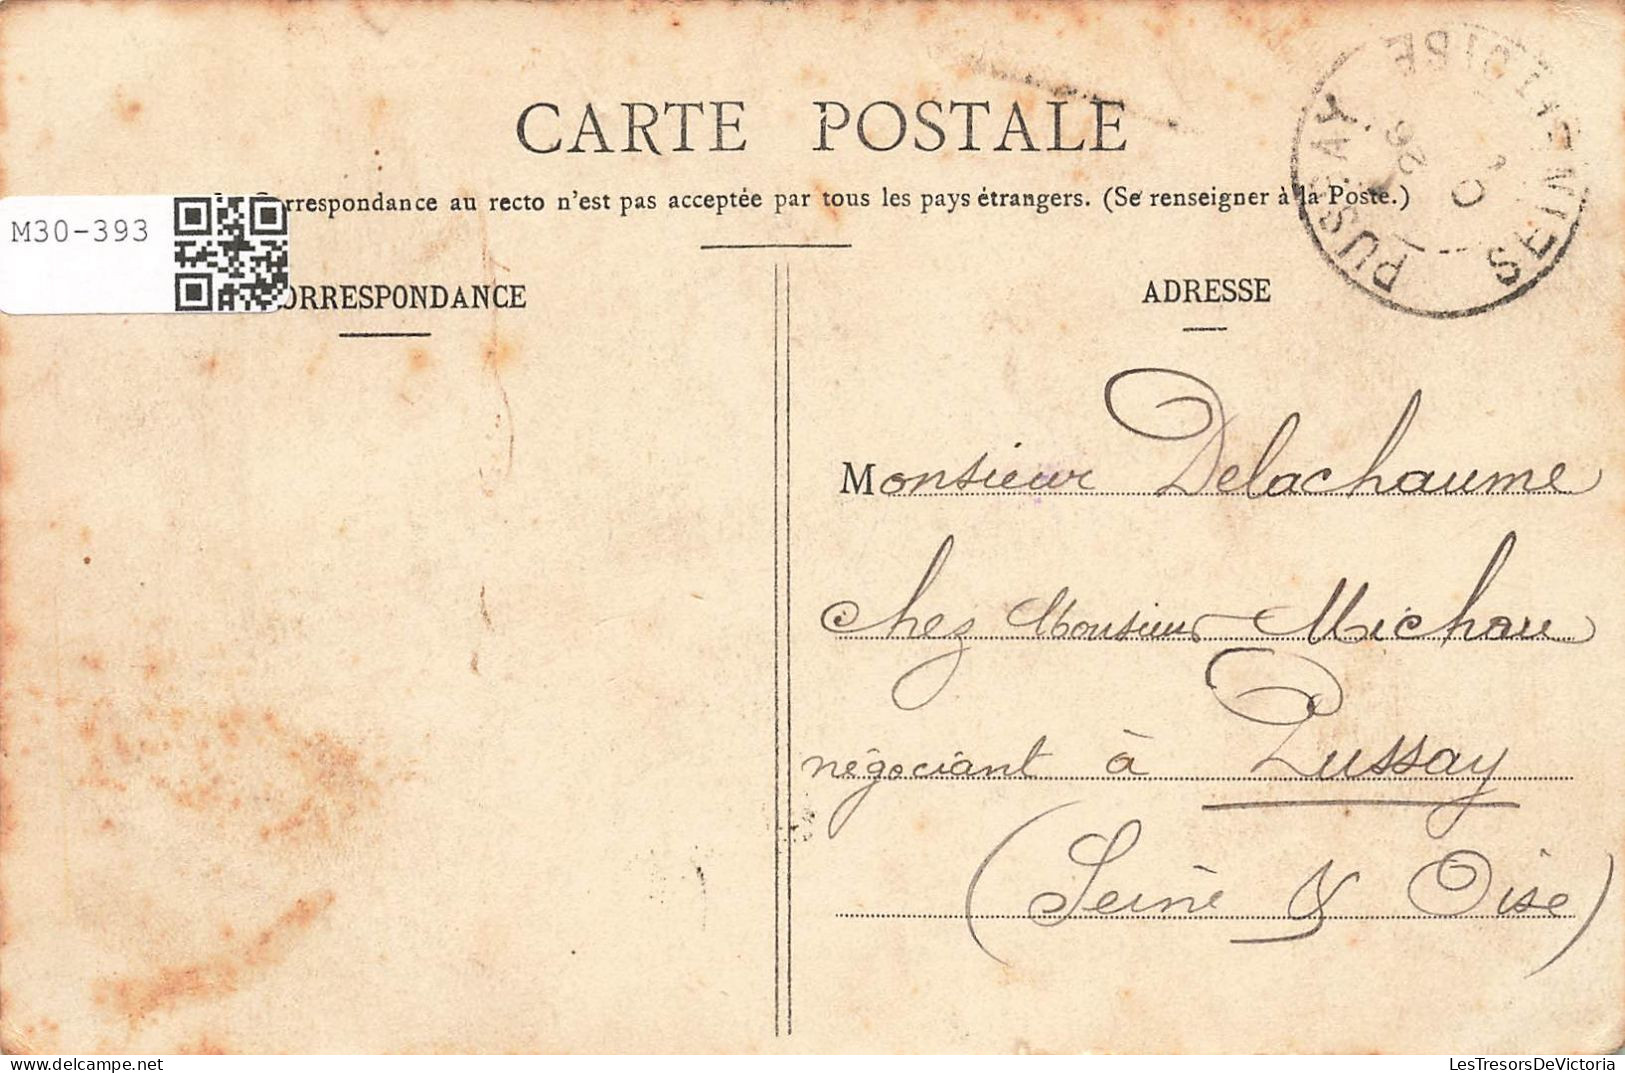 CARTE POSTALE
rrespondance au recto n'est pas acceptée par tous les pays étrangers. (Se renseigner à la Poste.)
M30-393
ORRESPONDANCE
ADRESSE
PUSSAY
SEINE-ET-OISE
Monsieur Delachaume
chez Monsieur Michau
négociant à Pussay
(Seine & Oise)
LesTresorsDeVictoria.com